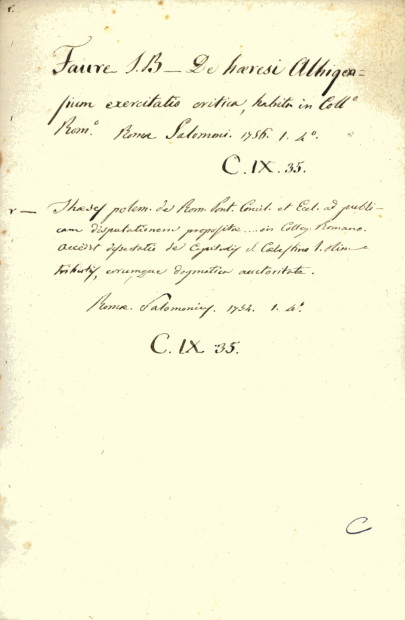 r.
Faure I.B — De haeresi Albigen=
sium exercitatio critica, habita in Coll.º
Rom.º Romæ Salomoni. 1756. 1. 4.º
C. IX. 35.
r — Theses polem. de Rom. Pont. Concil. et Eccl. ad publi-
cam disputationem propositæ .... in Colleg. Romano.
accedit dissertatio de Capitulis S. Cælestino I. olim
tributis, eorumque dogmatica auctoritate.
Romæ. Salomonius. 1754. 1. 4.º
C. IX 35.
C